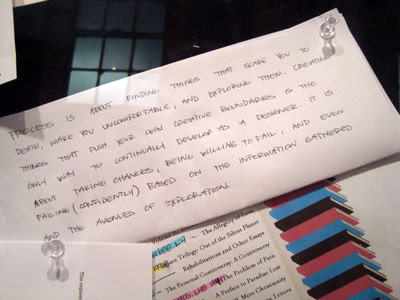 PROCESS IS ABOUT FINDING THINGS THAT SCARE YOU TO
DEATH, MAKE YOU UNCOMFORTABLE, AND EXPLORING THEM. CREATING
THINGS THAT PUSH YOUR OWN CREATIVE BOUNDARIES IS THE
ONLY WAY TO CONTINUALLY DEVELOP AS A DESIGNER. IT IS
ABOUT TAKING CHANCES, BEING WILLING TO FAIL, AND EVEN
FAILING (CONFIDENTLY) BASED ON THE INFORMATION GATHERED
AND THE AVENUES OF EXPLORATION.
The Allegory of
Trilogy: Out of the Silent Planet
Rehabilitations and Other Essays
The Personal Controversy: A Controversy
The Problem of Pain
A Preface to Paradise Lost
Mere Christianity